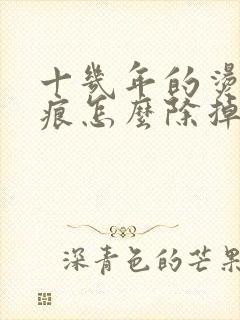 十幾年的燙
痕怎麼除掉
深青色的芒果